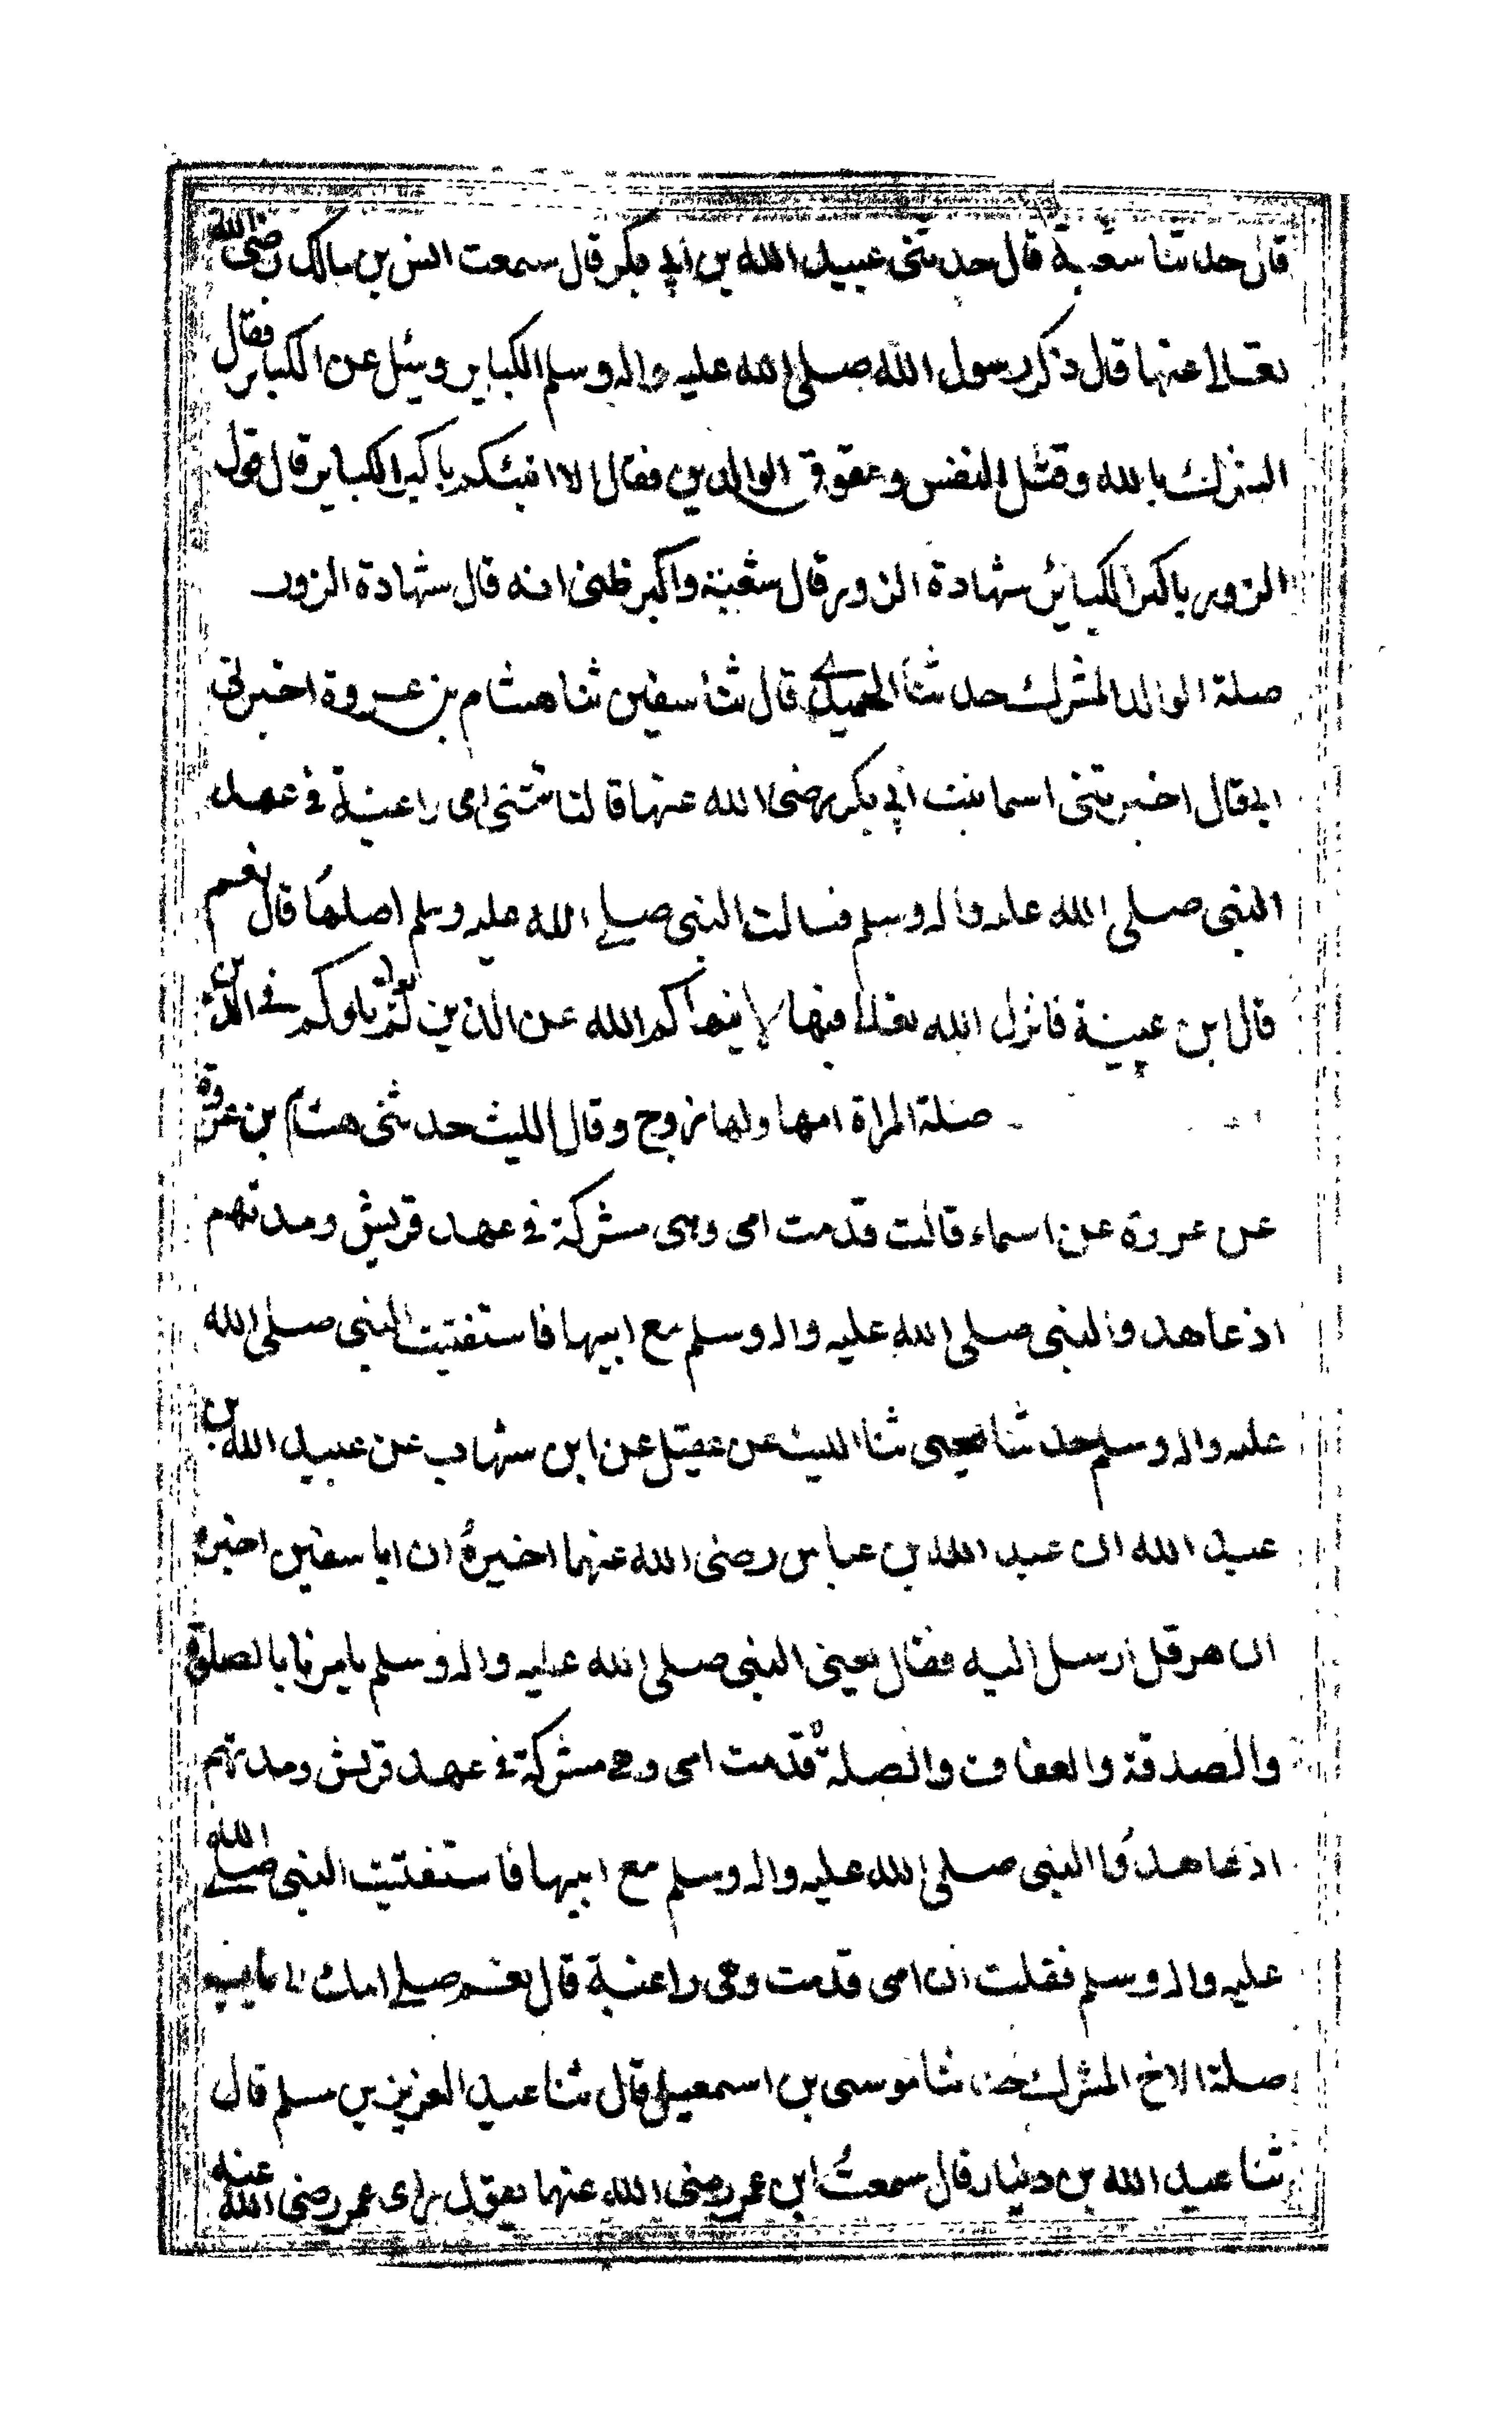 قال حدثنا شعبة قال حدثني عبيد الله بن ابي بكر قال سمعت انس بن مالك رضى الله
تعالى عنها قال ذكر رسول الله صلى الله عليه واله وسلم الكباير وسئل عن الكباير فقال
الشرك بالله وقتل النفس وعقوق الوالدين فقال الا انبئكم باكبر الكباير قال قول
الزور باكبر الكبائر شهادة الزور قال شعبة واكبر ظنى انه قال شهادة الزور
صلة الوالد المشرك حدثنا الحميدي قال ثنا سفين ثنا هشام بن عروة اخبرنى
ابى قال اخبرتنى اسما بنت ابي بكر رضى الله عنها قالت اتتنى امى راغبة فى عهد
النبى صلى الله عليه واله وسلم فسالت النبى صلى الله عليه وسلم اصلها قال نعم
قال ابن عيينة فانزل الله تعالى فيها لا ينهاكم الله عن الذين لم يقاتلوكم فى الدين
صلة المراة امها ولها زوج وقال الليث حدثنى هشام بن عروة
عن عروة عن اسماء قالت قدمت امى وهى مشركة فى عهد قريش ومدتهم
اذ عاهدوا النبى صلى الله عليه واله وسلم مع ابيها فاستفتيت النبى صلى الله
عليه واله وسلم حدثنا يحيى ثنا الليث عن عقيل عن ابن شهاب عن عبيد الله بن
عبد الله ان عبد الله بن عباس رضى الله عنهما اخبره ان ابا سفين اخبره
ان هرقل ارسل اليه فقال يعنى النبى صلى الله عليه واله وسلم يامرنا بالصلوة
والصدقة والعفاف والصلة قدمت امى وهى مشركة فى عهد قريش ومدتهم
اذ عاهدوا النبى صلى الله عليه واله وسلم مع ابيها فاستفتيت النبى صلى الله
عليه واله وسلم فقلت ان امى قدمت وهى راغبة قال نعم صلى امك
صلة الاخ المشرك حدثنا موسى بن اسمعيل قال ثنا عبد العزيز بن مسلم قال
ثنا عبد الله بن دينار قال سمعت ابن عمر رضى الله عنهما يقول راى عمر رضى الله عنه